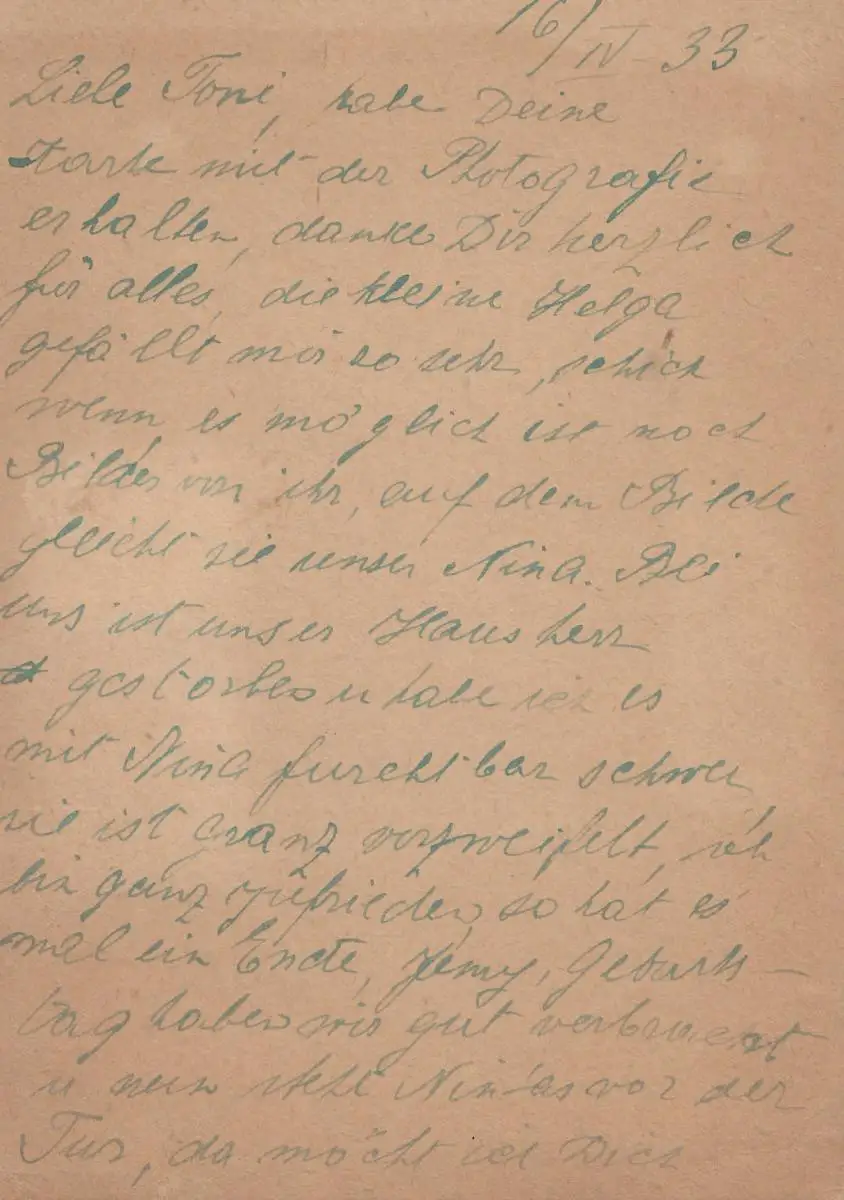 16/IV-33
Liebe Toni, habe Deine
Karte mit der Photografie
erhalten, danke Dir herzlich
für alles, die kleine Helga
gefällt mir so sehr, schick
wenn es möglich ist noch
Bilder von ihr, auf dem Bilde
gleicht sie unser Nina. Bei
uns ist unser Hausherr
gestorben u habe ich es
mit Nina furchtbar schwer
sie ist ganz verzweifelt, ich
bin ganz zufrieden, so hat es
mal ein Ende, Jemy, Geburts-
tag haben wir gut verbracht
u nun steht Nin'as vor der
Tür, da möcht ich Dich